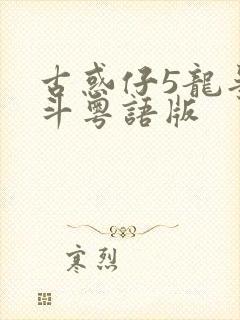 古惑仔5龍
斗粵語版
寒烈